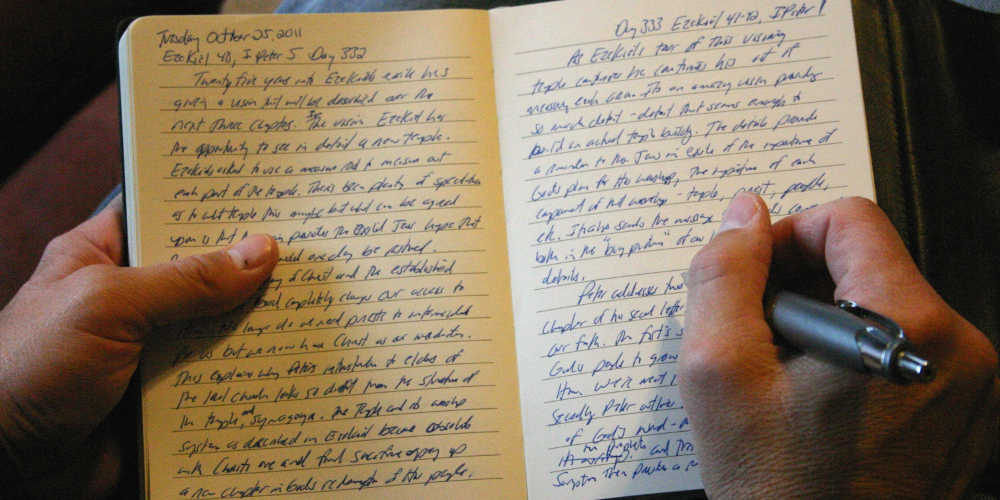 Tuesday October 25, 2011
Ezekiel 40, I Peter 5 Day 332
Twenty five years into Ezekiel's exile he's
given a vision that will be described over the
next three chapters. The vision Ezekiel has
the opportunity to see in detail a new temple.
Ezekiel asked to use a measure rod to measure out
each part of the temple. There's been plenty of speculation
as to what temple this might be but what can be agreed
upon is that the provides the exiled Jews hope that
one day be restored.
of Christ and the established
completely changes our access to
No longer do we need priests to
for us but we now have Christ as our mediator.
This explains why Peter's instruction to elders of
the local church looks so different from the structure of
the temple and synagogue. The Temple and its worship
system as described in Ezekiel became obsolete
with Christ's one and final sacrifice
a new chapter in God's redemption of His people.
Day 333 Ezekiel 41-42, II Peter 1
As Ezekiel's tour of this visionary
temple continues he continues his out of
measuring each area. It's an amazing vision providing
so much detail - detail that seems enough to
build an actual temple building. The details provide
a reminder to the Jews in exile of the importance of
God's plan for His worship, the importance of each
component of that worship - temple, priest, people,
etc. It also sends the message
both in the "big picture" of our
details.
Peter addresses two
chapter of his second letter
our faith. The first is
God's people to grow
Him. We're not
Secondly Peter outlines
of God's word -
the prophets
and
Scripture then provides a